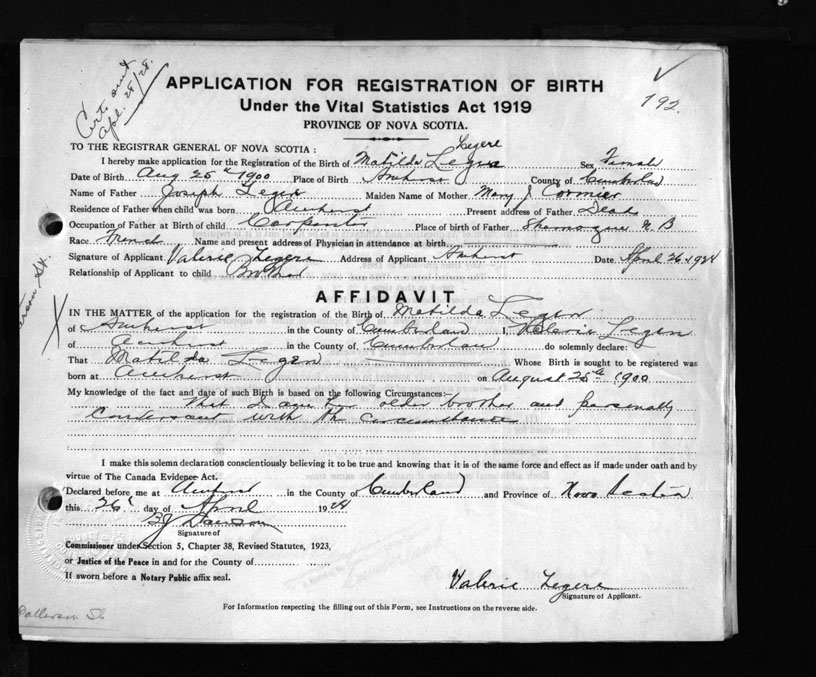 Cert. sent
Apl. 28/28.
192.
APPLICATION FOR REGISTRATION OF BIRTH
Under the Vital Statistics Act 1919
PROVINCE OF NOVA SCOTIA.
TO THE REGISTRAR GENERAL OF NOVA SCOTIA :
Legere
I hereby make application for the Registration of the Birth of Matilda Sex Female
Date of Birth Aug 25 1900 Place of Birth Amherst County of Cumberland
Name of Father Joseph Leger Maiden Name of Mother Mary J Cormier
Residence of Father when child was born Amherst Present address of Father Dead
Occupation of Father at Birth of child Carpenter Place of birth of Father Shemogue N. B
Race French Name and present address of Physician in attendance at birth
Signature of Applicant Valerie Legere Address of Applicant Amherst Date April 26
Relationship of Applicant to child Brother
AFFIDAVIT
IN THE MATTER of the application for the registration of the Birth of Matilda Leger
of Amherst in the County of Cumberland I, Valerie Leger
of Amherst in the County of Cumberland do solemnly declare:
That Matilda Leger Whose Birth is sought to be registered was
born at Amherst on August 25th 1900
My knowledge of the fact and date of such Birth is based on the following Circumstances:—
That I am her older brother and personally
Conversant with the circumstances
I make this solemn declaration conscientiously believing it to be true and knowing that it is of the same force and effect as if made under oath and by
virtue of The Canada Evidence Act.
Declared before me at Amherst in the County of Cumberland and Province of Nova Scotia
this 26 day of April 19
Signature of
Commissioner under Section 5, Chapter 38, Revised Statutes, 1923,
or Justice of the Peace in and for the County of
If sworn before a Notary Public affix seal.
Valerie Legere
Signature of Applicant.
For Information respecting the filling out of this Form, see Instructions on the reverse side.